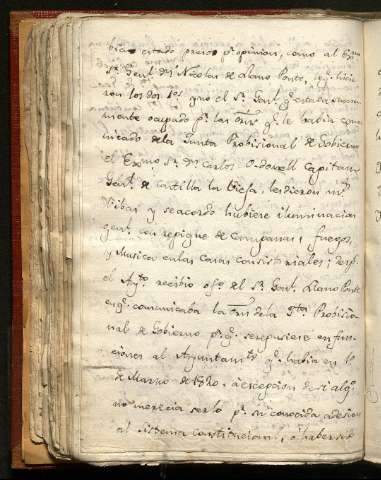 citado preciso pª opinion, como al Exmo
Sr. Genl. Dn Nicolas de Llano Ponte, q.
ron los dos 1os que el Sr. Genl. q. estaba
mente ocupado pr. las q. le habia comu
nicado de la Junta Provisional de Gobierno
el Exmo Sr. Dn Carlos Odonell Capitan
Genl. de Castilla la Vieja, le dieron mil
Vibas y se acordo hubiere iluminacion
genl. con repique de Campanas, fuegos,
y Musica en las Casas Consistoriales; desp.
el Ayto. recibio ofo. de el Sr. Genl. Llano Ponte
en q. comunicaba la de la Jta. Provisio
nal de Gobierno pa. q. se repusiese en fun
ciones al Ayuntamto. q. habia en 1º
de Marzo de 1820. a excepcion de si algo.
no merecia serlo pr. su conocida adesion
al sistema constitucional, o haber sido